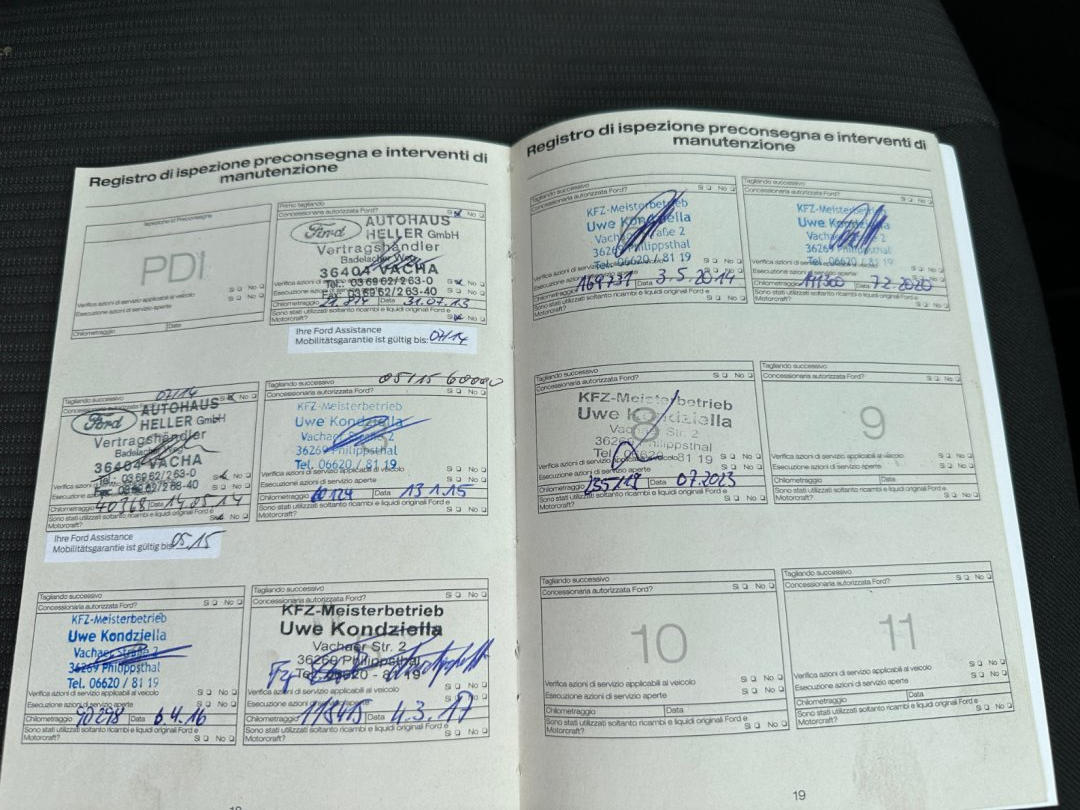 Registro di ispezione preconsegna e interventi di
manutenzione
Ispezione di Preconsegna
PDI
Verifica azioni di servizio applicabili al veicolo Sì No
Esecuzione azioni di servizio aperte Sì No
Chilometraggio Data
Primo tagliando
Concessionaria autorizzata Ford? Sì No
Ford AUTOHAUS
HELLER GmbH
Vertragshändler
Badelacher Weg
36404 VACHA
Tel. 036962/263-0
Fax 036962/263-40
Chilometraggio Data 31.07.13
Sono stati utilizzati soltanto ricambi e liquidi originali Ford e
Motorcraft? Sì No
Ihre Ford Assistance
Mobilitätsgarantie ist gültig bis: 07/14
07/14
Ford AUTOHAUS
HELLER GmbH
Vertragshändler
36404 VACHA
Tel. 036962/263-0
Fax 036962/263-40
Chilometraggio 40368 Data 14.05.14
Sono stati utilizzati soltanto ricambi e liquidi originali Ford e
Motorcraft? Sì No
Ihre Ford Assistance
Mobilitätsgarantie ist gültig bis: 05.15
05/15 60000
Tagliando successivo
Concessionaria autorizzata Ford? Sì No
KFZ-Meisterbetrieb
Uwe Kondziella
Vachaer Straße 2
36269 Philippsthal
Tel. 06620 / 81 19
Verifica azioni di servizio applicabili al veicolo Sì No
Esecuzione azioni di servizio aperte Sì No
Chilometraggio Data 13.1.15
Sono stati utilizzati soltanto ricambi e liquidi originali Ford e
Motorcraft? Sì No
Tagliando successivo
Concessionaria autorizzata Ford? Sì No
KFZ-Meisterbetrieb
Uwe Kondziella
Vachaer Straße 2
36269 Philippsthal
Tel. 06620 / 81 19
Verifica azioni di servizio applicabili al veicolo Sì No
Esecuzione azioni di servizio aperte Sì No
Chilometraggio 90298 Data 6.4.16
Sono stati utilizzati soltanto ricambi e liquidi originali Ford e
Motorcraft? Sì No
Tagliando successivo
Concessionaria autorizzata Ford? Sì No
KFZ-Meisterbetrieb
Uwe Kondziella
Vachaer Str. 2
36269 Philippsthal
Tel. 06620 - 81 19
Verifica azioni di servizio applicabili al veicolo Sì No
Esecuzione azioni di servizio aperte Sì No
Chilometraggio Data 4.3.17
Sono stati utilizzati soltanto ricambi e liquidi originali Ford e
Motorcraft? Sì No
18
Registro di ispezione preconsegna e interventi di
manutenzione
Tagliando successivo
Concessionaria autorizzata Ford? Sì No
KFZ-Meisterbetrieb
Uwe Kondziella
Vachaer Straße 2
36269 Philippsthal
Tel. 06620 / 81 19
Verifica azioni di servizio
Esecuzione azioni di servizio aperte Sì No
Chilometraggio 169731 Data
Sono stati utilizzati soltanto ricambi e liquidi originali Ford e
Motorcraft? Sì No
Tagliando successivo
Concessionaria autorizzata Ford? Sì No
KFZ-Meisterbetrieb
Uwe
Vachaer Straße 2
36269 Philippsthal
Tel. 06620 / 81 19
Verifica azioni di servizio
Esecuzione azioni di servizio aperte Sì No
Data 7.2.2020
Sono stati utilizzati soltanto ricambi e liquidi originali Ford e
Motorcraft? Sì No
Tagliando successivo
Concessionaria autorizzata Ford? Sì No
8
KFZ-Meisterbetrieb
Uwe Kondziella
Vachaer Str. 2
36269 Philippsthal
Tel. 06620 81 19
Verifica azioni di servizio applicabili al veicolo Sì No
Esecuzione azioni di servizio aperte Sì No
Chilometraggio Data 07.2023
Sono stati utilizzati soltanto ricambi e liquidi originali Ford e
Motorcraft? Sì No
Tagliando successivo
Concessionaria autorizzata Ford? Sì No
9
Verifica azioni di servizio applicabili al veicolo Sì No
Esecuzione azioni di servizio aperte Sì No
Chilometraggio Data
Sono stati utilizzati soltanto ricambi e liquidi originali Ford e
Motorcraft? Sì No
Tagliando successivo
Concessionaria autorizzata Ford? Sì No
10
Verifica azioni di servizio applicabili al veicolo Sì No
Esecuzione azioni di servizio aperte Sì No
Chilometraggio Data
Sono stati utilizzati soltanto ricambi e liquidi originali Ford e
Motorcraft? Sì No
Tagliando successivo
Concessionaria autorizzata Ford? Sì No
11
Verifica azioni di servizio applicabili al veicolo Sì No
Esecuzione azioni di servizio aperte Sì No
Chilometraggio Data
Sono stati utilizzati soltanto ricambi e liquidi originali Ford e
Motorcraft? Sì No
19